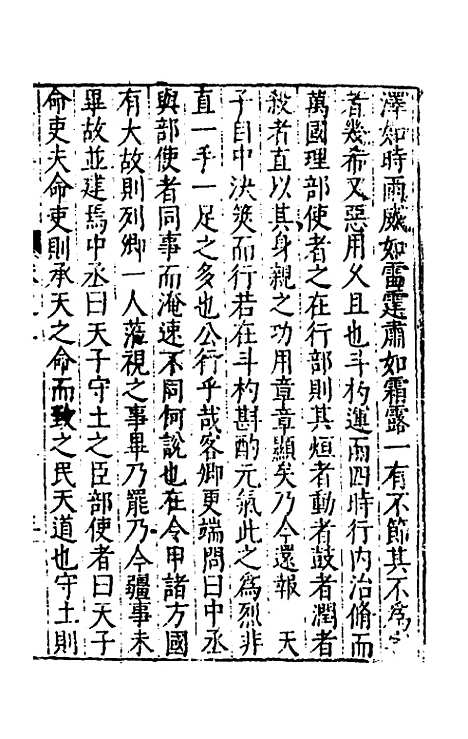 澤如時雨威如雷霆肅如霜露一有不節其不爲
者幾希又惡用久且也斗杓運而四時行內治脩而
萬國理部使者之在行部則其烜者動者鼓者潤者
殺者直以其身親之功用章章顯矣乃今還報 天
子目中決筴而行若在斗杓斟酌元氣此之爲烈非
直一手一足之多也公行乎哉客卿更端問曰中丞
與部使者同事而淹速不同何說也在令甲諸方國
有大故則列卿一人蒞視之事畢乃罷乃今疆事未
畢故並建焉中丞曰天子守土之臣部使者曰天子
命吏夫命吏則承天之命而致之民天道也守土則